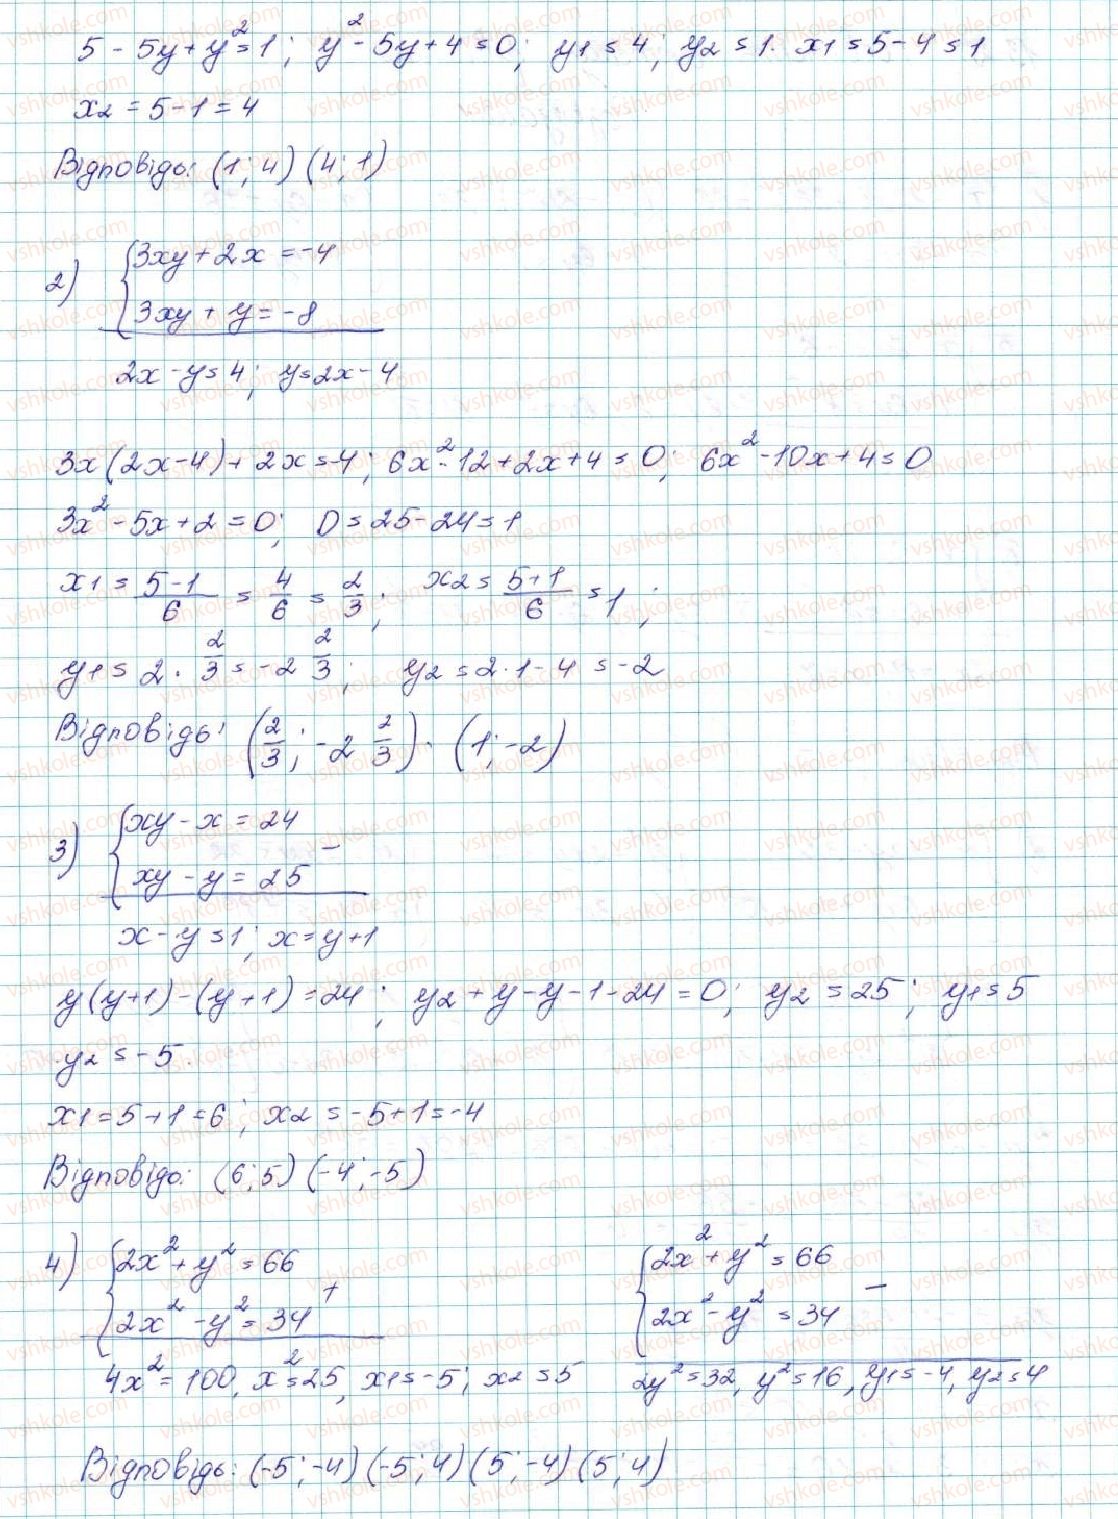 5 - 5y + y² = 1; y² - 5y + 4 = 0; y1 = 4; y2 = 1. x1 = 5 - 4 = 1
x2 = 5 - 1 = 4
Відповідь: (1; 4) (4; 1)
2) { 3xy + 2x = -4
3xy + y = -8
2x - y = 4; y = 2x - 4
3x(2x - 4) + 2x = -4; 6x² - 12 + 2x + 4 = 0; 6x² - 10x + 4 = 0
3x² - 5x + 2 = 0; D = 25 - 24 = 1
x1 = (5 - 1)/6 = 4/6 = 2/3; x2 = (5 + 1)/6 = 1;
y1 = 2 · 2/3 = -2 2/3; y2 = 2 · 1 - 4 = -2
Відповідь: (2/3; -2 2/3). (1; -2)
3) { xy - x = 24
xy - y = 25 -
x - y = 1; x = y + 1
y(y + 1) - (y + 1) = 24; y2 + y - y - 1 - 24 = 0; y2 = 25; y1 = 5
y2 = -5.
x1 = 5 + 1 = 6; x2 = -5 + 1 = -4
Відповідь: (6; 5) (-4; -5)
4) { 2x² + y² = 66 { 2x² + y² = 66
2x² - y² = 34 + 2x² - y² = 34 -
4x² = 100, x² = 25, x1 = -5; x2 = 5 2y² = 32, y² = 16, y1 = -4, y2 = 4
Відповідь: (-5; -4) (-5; 4) (5; -4) (5; 4)
vshkole.com